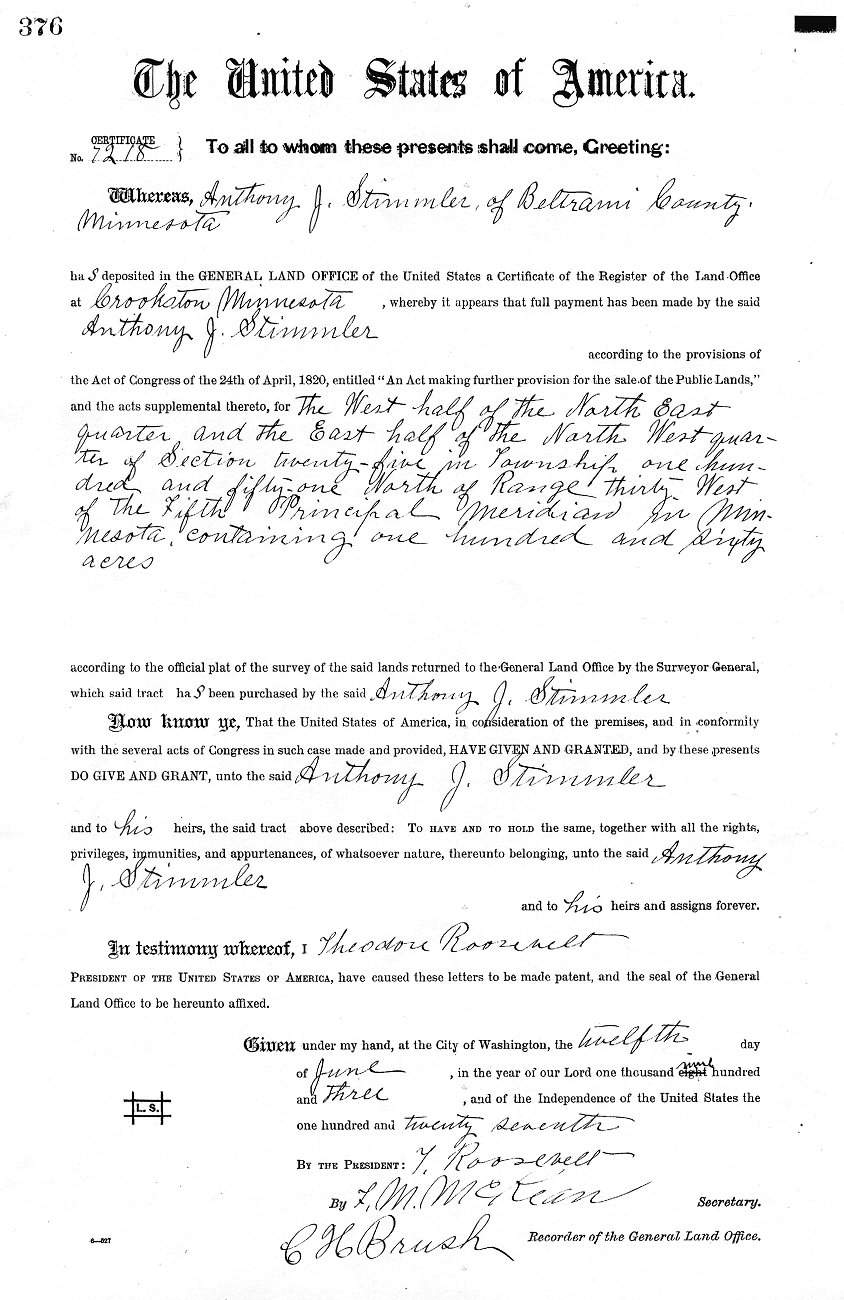 376
The United States of America.
CERTIFICATE
No. 7218
To all to whom these presents shall come, Greeting:
Whereas, Anthony J. Stimmler, of Beltrami County.
Minnesota
ha s deposited in the GENERAL LAND OFFICE of the United States a Certificate of the Register of the Land Office
at Crookston Minnesota , whereby it appears that full payment has been made by the said
Anthony J. Stimmler
according to the provisions of
the Act of Congress of the 24th of April, 1820, entitled "An Act making further provision for the sale of the Public Lands,"
and the acts supplemental thereto, for the West half of the North East
quarter and the East half of the North West quar-
ter of Section twenty-five in Township one hun-
dred and fifty-one North of Range thirty West
of the Fifth Principal Meridian in Min-
nesota, containing one hundred and sixty
acres
according to the official plat of the survey of the said lands returned to the General Land Office by the Surveyor General,
which said tract ha s been purchased by the said Anthony J. Stimmler
Now know ye, That the United States of America, in consideration of the premises, and in conformity
with the several acts of Congress in such case made and provided, HAVE GIVEN AND GRANTED, and by these presents
DO GIVE AND GRANT, unto the said Anthony J. Stimmler
and to his heirs, the said tract above described: TO HAVE AND TO HOLD the same, together with all the rights,
privileges, immunities, and appurtenances, of whatsoever nature, thereunto belonging, unto the said Anthony
J. Stimmler
and to his heirs and assigns forever.
In testimony whereof, I Theodore Roosevelt
PRESIDENT OF THE UNITED STATES OF AMERICA, have caused these letters to be made patent, and the seal of the General
Land Office to be hereunto affixed.
Given under my hand, at the City of Washington, the twelfth day
of June , in the year of our Lord one thousand eight nine hundred
and three , and of the Independence of the United States the
one hundred and twenty seventh
L. S.
BY THE PRESIDENT: T. Roosevelt
By F. M. McKean Secretary.
C H Brush Recorder of the General Land Office.
6—527